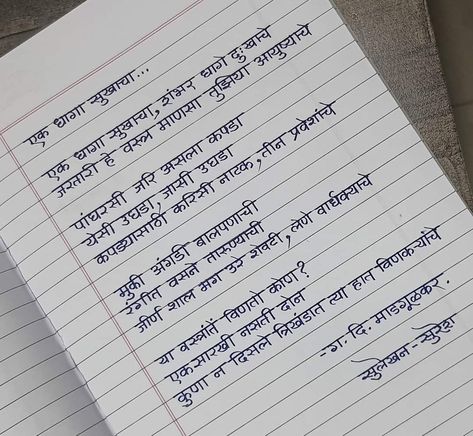 एक धागा सुखाचा...
एक धागा सुखाचा, शंभर धागे दुःखाचे
जरतारी हे वस्त्र माणसा तुझिया आयुष्याचे
पांघरसी जरि असला कपडा
येसी उघडा, जासी उघडा
कपड्यासाठी करिसी नाटक, तीन प्रवेशांचे
मुकी अंगडी बालपणाची
रंगीत वसने तारुण्याची
जीर्ण शाल मग उरे शेवटी, लेणे वार्धक्याचे
या वस्त्रांते विणतो कोण?
एकसारखी नसती दोन
कुणा न दिसले त्रिखंडात त्या हात विणकऱ्यांचे
-ग. दि. माडगूळकर.
सुलेखन - सुरेश